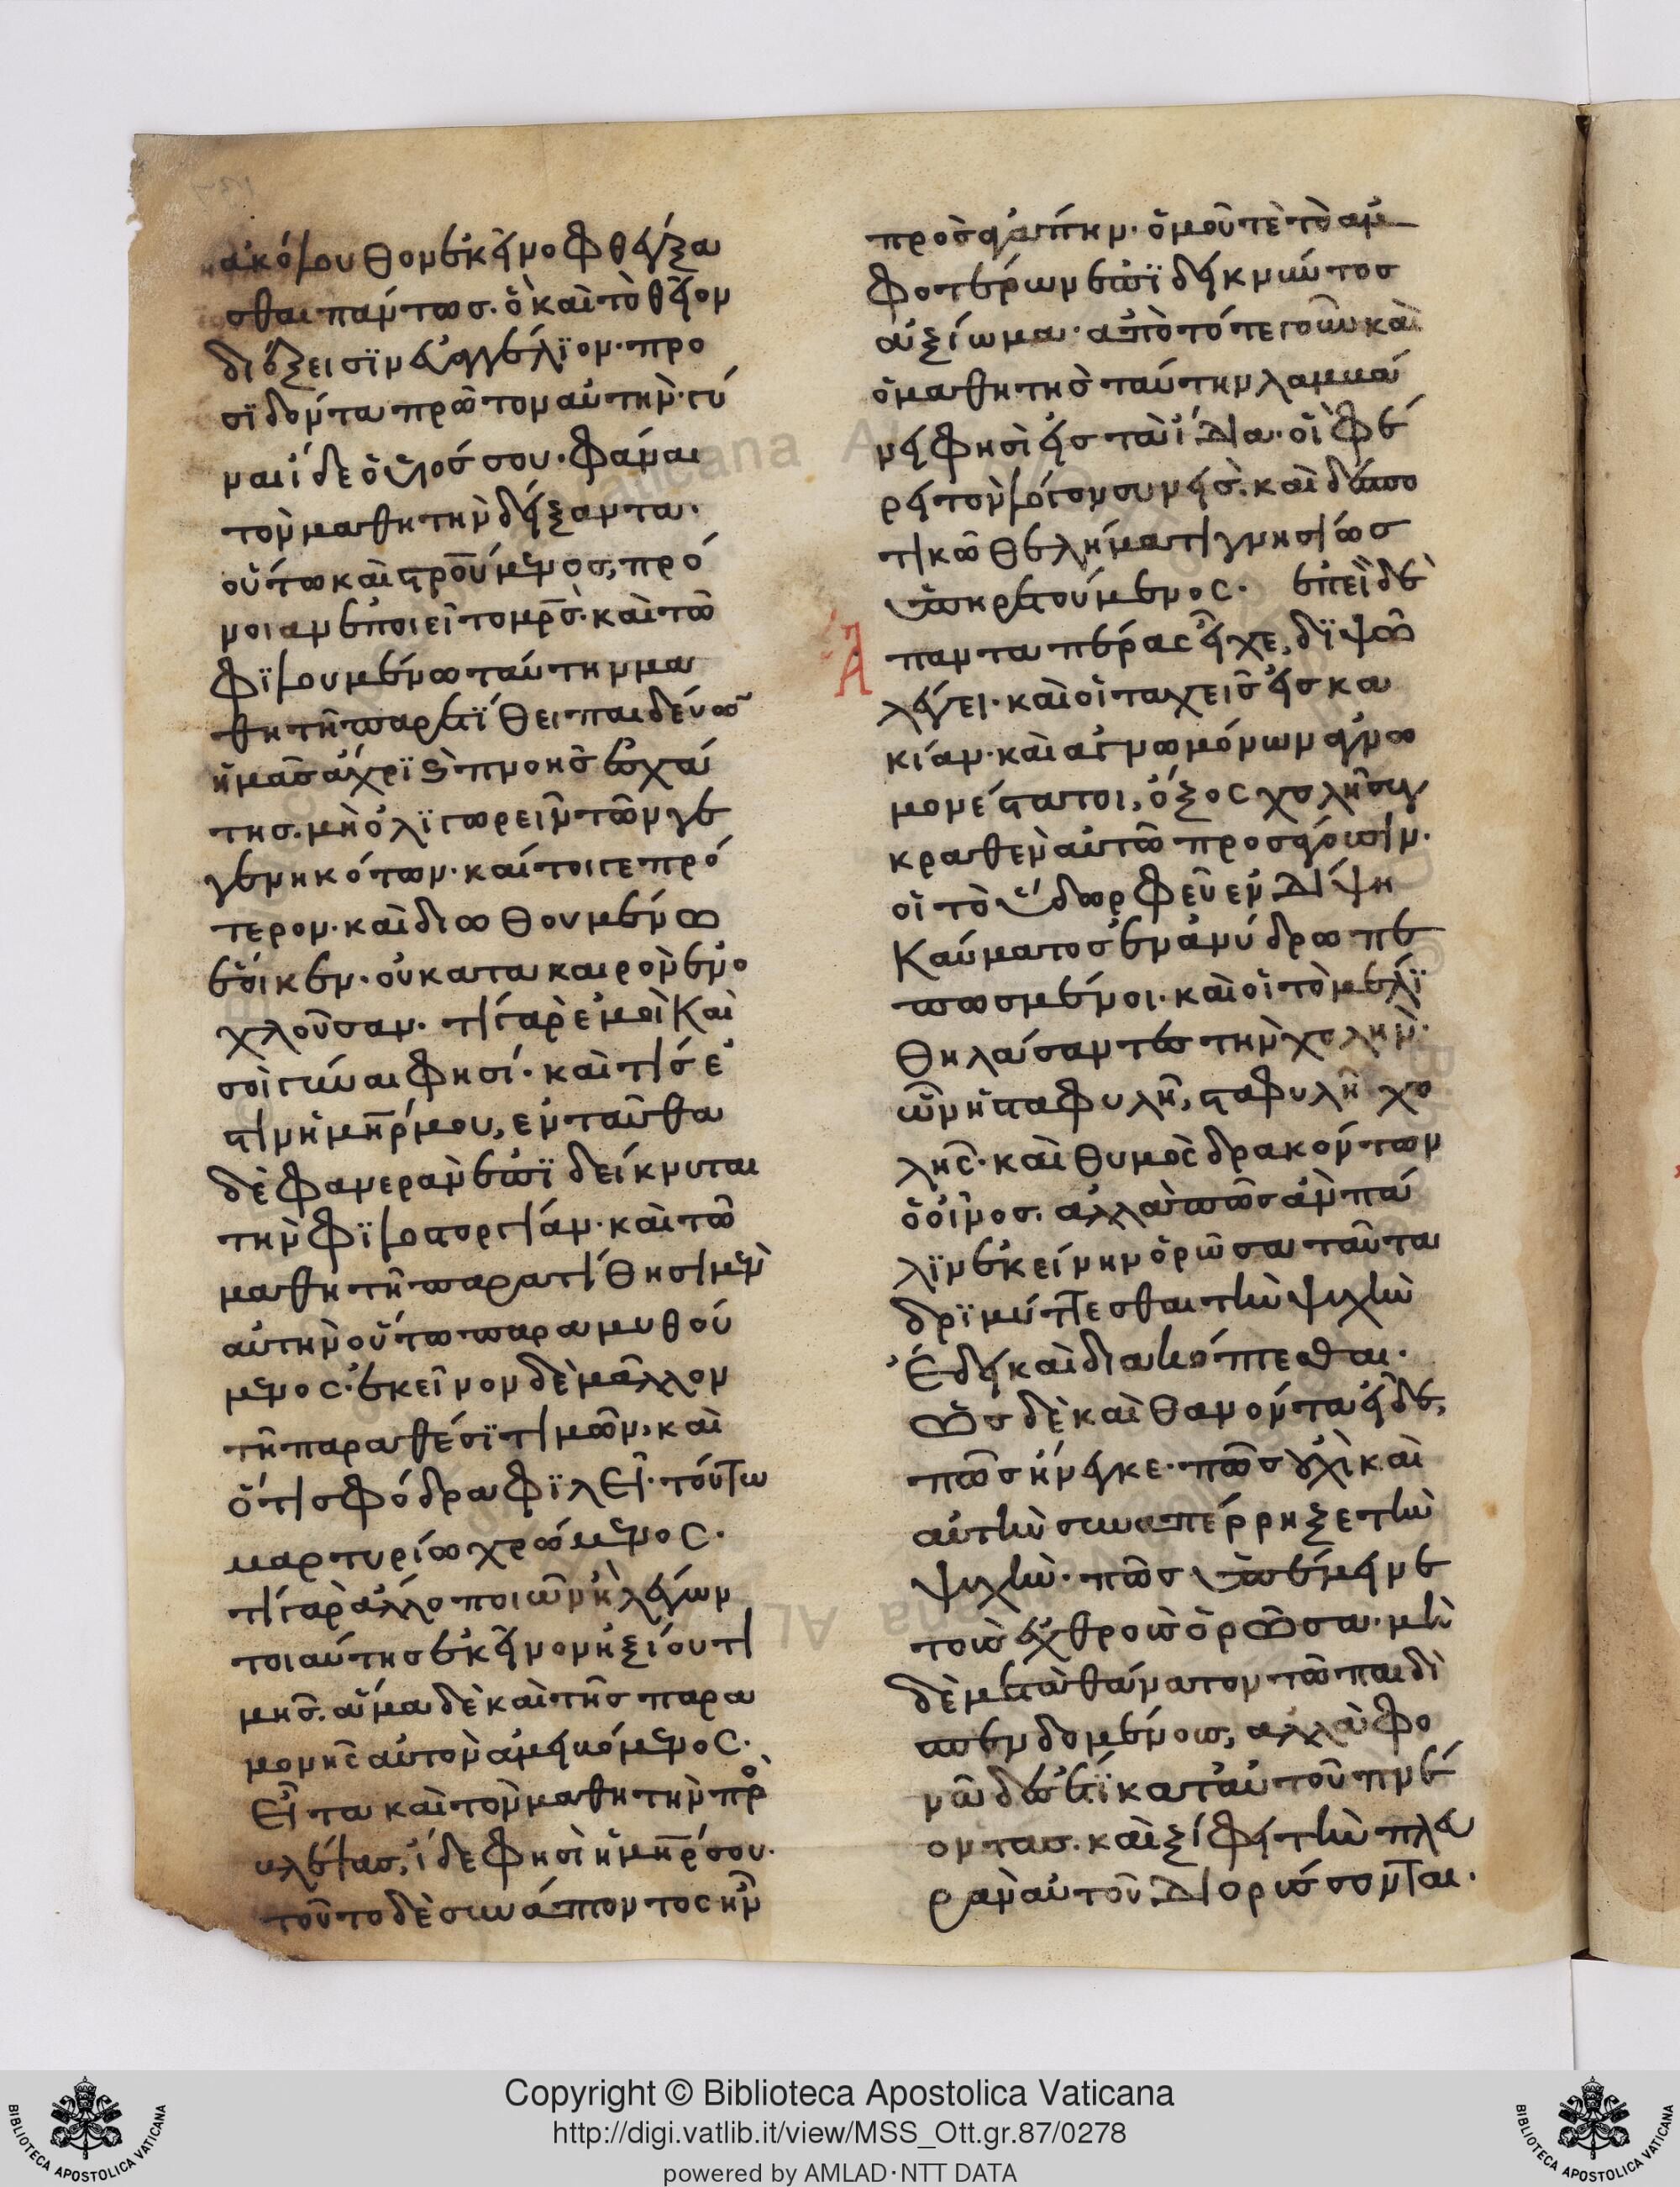 ἀκόλουθον ἐκεῖνο φθέγξα
σθαι πάντως. ὃ καὶ τὸ θεῖον
διέξεισϊν εὐαγγέλϊον. προ
σϊδόντα πρῶτον αὐτὴν. γύ
ναι ἴδε ὁ υἱός σου. φάναι
τὸν μαθητὴν δείξαντα.
οὕτω καὶ σταυρούμενος, πρό
νοιαν ἐποιεῖτο μητρὸς. καὶ τῶ
φϊλουμένω ταύτην μα
θητῆ παρατϊθει παιδεύων
ἡμᾶς ἄχρϊ καὶ πνοῆς ἐσχά
της. μὴ ὀλϊγωρεῖν τῶν γε
γεννηκότων. καίτοιγε πρό
τερον. καὶ διωθουμένω
ἐῴκεν. οὐ κατα καιρὸν ἐνο
χλοῦσαν. τί γὰρ ἐμοὶ καὶ
σοὶ γύναι φησί. καὶ τίς ἐ
στιν ἡ μήτηρ μου, ἐνταῦθα
δὲ φανερὰν ἐπϊδείκνυται
τὴν φϊλοστοργίαν. καὶ τῶ
μαθητῆ παρατίθησι μὲν
αὐτὴν οὕτω παραμυθού
μενος. ἐκεῖνον δὲ μᾶλλον
τῆ παραθέσϊ τιμῶν, καὶ
ὅτι σφόδρα φϊλεῖ. τούτω
μαρτυρίω χρώμενος.
τί γὰρ ἄλλο ποιῶν καὶ λέγων
τοιαύτης ἐκεῖνον ἠξίου τι
μῆς. ἅμα δὲ καὶ τῆς παρα
μονῆς αὐτὸν ἀμειβόμενος.
Εἶτα καὶ τὸν μαθητὴν προσ
καλέσας, ἴδε φησὶ ἡ μήτηρ σου.
τοῦτο δὲ συνάπτοντος ἦν
πρὸς ἀγάπην. ὁμοῦ τὲ τὸ ἀμ
φοτέρων ἐπϊδεικνύντος
ἀξίωμα. ἀπὸ τότε γοῦν καὶ
ὁ μαθητὴς ταύτην λαμβά
νει φησὶ εἰς τὰ ἴδια. οἷα φέ
ρει τὸν λόγον συνεὶς. καὶ δεσπο
τικῶ θελήματι γνησίως
ὑποκρατούμενος. ἐπεὶ δὲ
παντα πέρας εἶχε, διψῶ
λέγει. καὶ οἱ ταχεῖς εἰς κα
κίαν. καὶ ἀγνωμόνων ἀγνω
μονέστατοι, ὄξος χολῆ συγ
κραθεν αὐτῶ προσάγουσιν.
οἱ τὸ ὕδωρ φεῦ ἐν δίψη
Καύματος ἐν ἀνύδρω πε
πωσμένοι. καὶ οἱ τὸ μέλϊ
θηλάσαντες τὴν χολὴν.
ὧν ἡ σταφυλὴ, σταφυλὴ χο
λῆς. καὶ θυμὸς δρακόντων
ὁ οἶνος. ἀλλὰ πῶς ἂν πά
λϊν ἐκείνην ὁρῶσα ταῦτα
δρϊμύττεσθαι τὴν ψυχὴν
Ἔδει καὶ διακόπτεσθαι.
Ὡς δὲ καὶ θανόντα εἶδε,
πῶς ἤνεγκε. πῶς οὐχὶ καὶ
αὐτὴν συναπέρρηξε τὴν
ψυχὴν. πῶς ὑπέμεινε
τοὺς ἐχθροὺς ὁρῶσα. μὴ
δὲ μετὰ θάνατον τῶ παιδὶ
σπενδομένους, ἀλλὰ φο
νῶδες ἔτϊ κατ᾽ αὐτοῦ πνέ
οντας. καὶ ξίφει τὴν πλευ
ρὰν αὐτοῦ διορύσσονται.
Copyright © Biblioteca Apostolica Vaticana
http://digi.vatlib.it/view/MSS_Ott.gr.87/0278
powered by AMLAD·NTT DATA
BIBLIOTECA APOSTOLICA VATICANA
BIBLIOTECA APOSTOLICA VATICANA